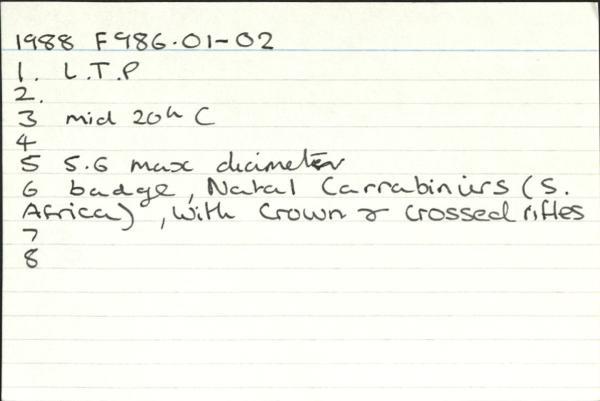 1988 F986.01-02
1. L.T.P
2.
3 mid 20th C
4
5 5.6 max diameter
6 badge, Natal Carrabiniers (S.
Africa), with Crown & crossed rifles
7
8